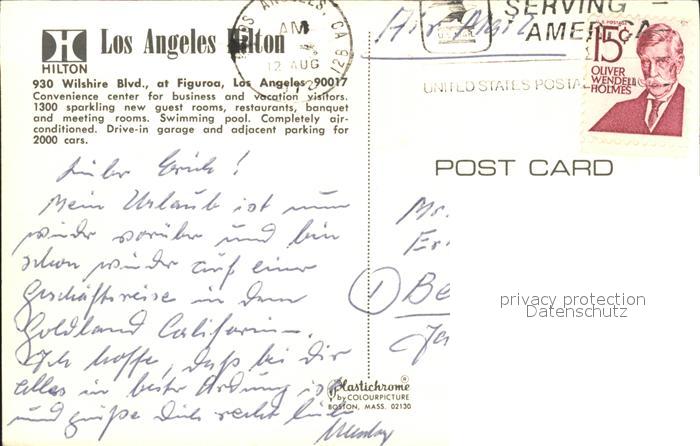 H
HILTON
Los Angeles Hilton
930 Wilshire Blvd., at Figuroa, Los Angeles 90017
Convenience center for business and vacation visitors.
1300 sparkling new guest rooms, restaurants, banquet
and meeting rooms. Swimming pool. Completely air-
conditioned. Drive-in garage and adjacent parking for
2000 cars.
LOS ANGELES, CA
AM
12 AUG
Air Mail
SERVING
AMERICA
UNITED STATES POSTAL
U.S. POSTAGE
15¢
OLIVER
WENDELL
HOLMES
POST CARD
Lieber Erich!
Mein Urlaub ist nun
wieder vorüber und bin
schon wieder auf einer
Geschäftsreise in dem
Goldland Californien.
Ich hoffe, daß bei Dir
alles in bester Ordnung ist
und grüße Dich recht
Mr.
Er
① Be
privacy protection
Datenschutz
Plastichrome®
by COLOURPICTURE
BOSTON, MASS. 02130